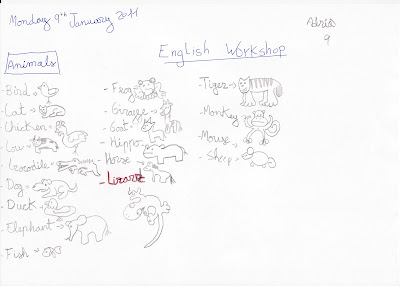 Monday 9th January 2011
Adrià
9
English Workshop
Animals
- Bird →
- Cat →
- Chicken →
- Cow →
- Crocodile →
- Dog →
- Duck →
- Elephant →
- Fish →
- Frog →
- Giraffe →
- Goat →
- Hippo →
- Horse →
- Lizard
- Tiger →
- Monkey →
- Mouse →
- Sheep →